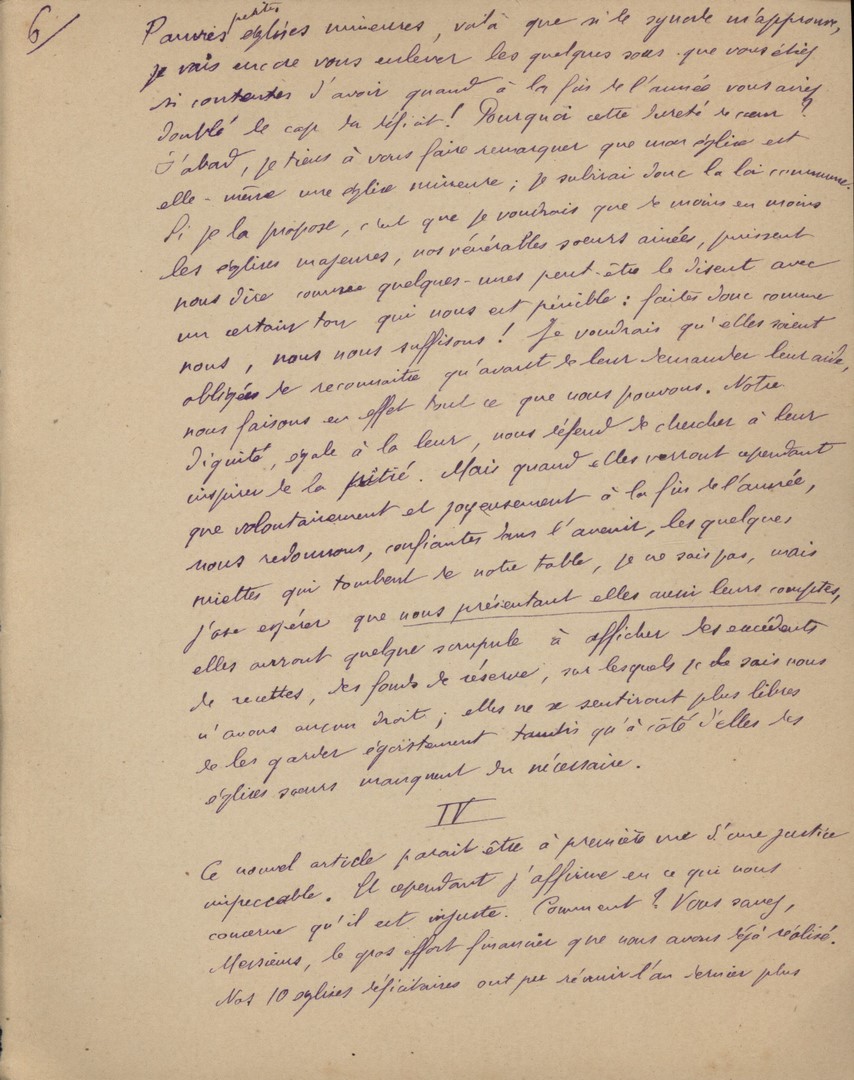 6/
Pauvres petites églises mineures, voilà que si le synode m'approuve,
je vais encore vous enlever les quelques sous que vous étiez
si contentes d'avoir quand à la fin de l'année vous aviez
doublé le cap du déficit ! Pourquoi cette dureté de cœur ?
D'abord, je tiens à vous faire remarquer que mon église est
elle-même une église mineure ; je subirai donc la loi commune.
Si je la propose, c'est que je voudrais que de moins en moins
les églises majeures, nos vénérables sœurs aînées, puissent
nous dire comme quelques-unes peut-être le disent avec
un certain ton qui nous est pénible : faites donc comme
nous, nous nous suffisons ! Je voudrais qu'elles soient
obligées de reconnaître qu'avant de leur demander leur aide,
nous faisons en effet tout ce que nous pouvons. Notre
dignité, égale à la leur, nous défend de chercher à leur
inspirer de la pitié. Mais quand elles verront cependant
que volontairement et joyeusement à la fin de l'année,
nous redonnons, confiantes dans l'avenir, les quelques
miettes qui tombent de notre table, je ne sais pas, mais
j'ose espérer que nous présentant elles aussi leurs comptes,
elles auront quelque scrupule à afficher des excédents
de recettes, des fonds de réserve, sur lesquels je le sais nous
n'avons aucun droit ; elles ne se sentiront plus libres
de les garder égoïstement tandis qu'à côté d'elles des
églises sœurs manquent du nécessaire.
IV
Ce nouvel article paraît être à première vue d'une justice
impeccable. Et cependant j'affirme en ce qui nous
concerne qu'il est injuste. Comment ? Vous savez,
Messieurs, le gros effort financier que nous avons déjà réalisé.
Nos 10 églises déficitaires ont pu réunir l'an dernier plus